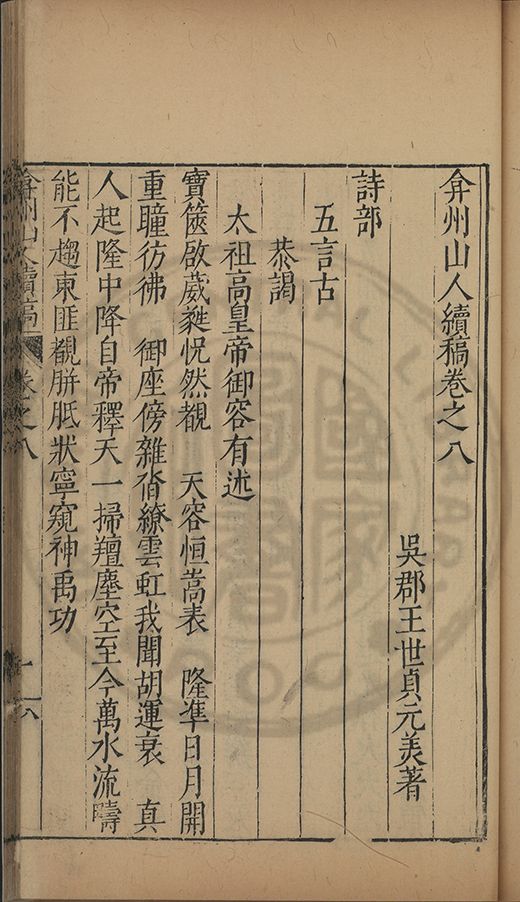 弇州山人續稿卷之八
吳郡王世貞元美著
詩部
五言古
恭謁
太祖高皇帝御容有述
寶篋啟葳蕤恍然覩　天容恒嵩表　隆準日月開
重瞳彷彿　御座傍雜沓繚雲虹我聞胡運衰　真
人起隆中降自帝釋天一掃羶塵空至今萬水流疇
能不趨東匪覩胼胝狀寧窺神禹功
弇州山人續稿 卷之八